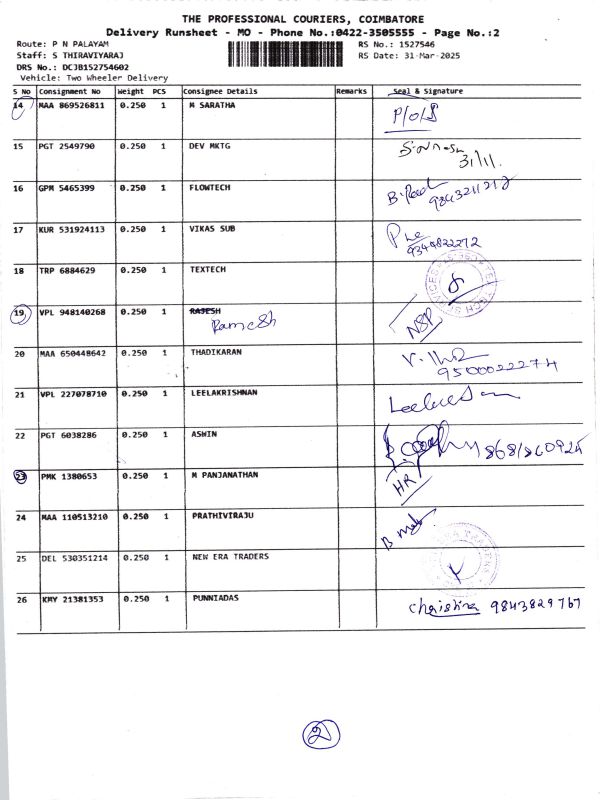 THE PROFESSIONAL COURIERS, COIMBATORE
Delivery Runsheet - MO - Phone No.:0422-3505555 - Page No.:2
Route: P N PALAYAM
RS No.: 1527546
Staff: S THIRAVIYARAJ
RS Date: 31-Mar-2025
DRS No.: DCJB152754602
Vehicle: Two Wheeler Delivery
S No Consignment No Weight PCS Consignee Details Remarks Seal & Signature
14 MAA 869526811 0.250 1 M SARATHA P/O/S
15 PGT 2549790 0.250 1 DEV MKTG 31/11.
16 GPM 5465399 0.250 1 FLOWTECH 9843211212
17 KUR 531924113 0.250 1 VIKAS SUB 9344822272
18 TRP 6884629 0.250 1 TEXTECH
19 VPL 948140268 0.250 1 RAJESH
Ramesh NSP
20 MAA 650448642 0.250 1 THADIKARAN
9500022274
21 VPL 227078710 0.250 1 LEELAKRISHNAN
22 PGT 6038286 0.250 1 ASWIN
23 PMK 1380653 0.250 1 M PANJANATHAN HR
24 MAA 110513210 0.250 1 PRATHIVIRAJU
25 DEL 530351214 0.250 1 NEW ERA TRADERS
26 KMY 21381353 0.250 1 PUNNIADAS Christina 9843829767
2